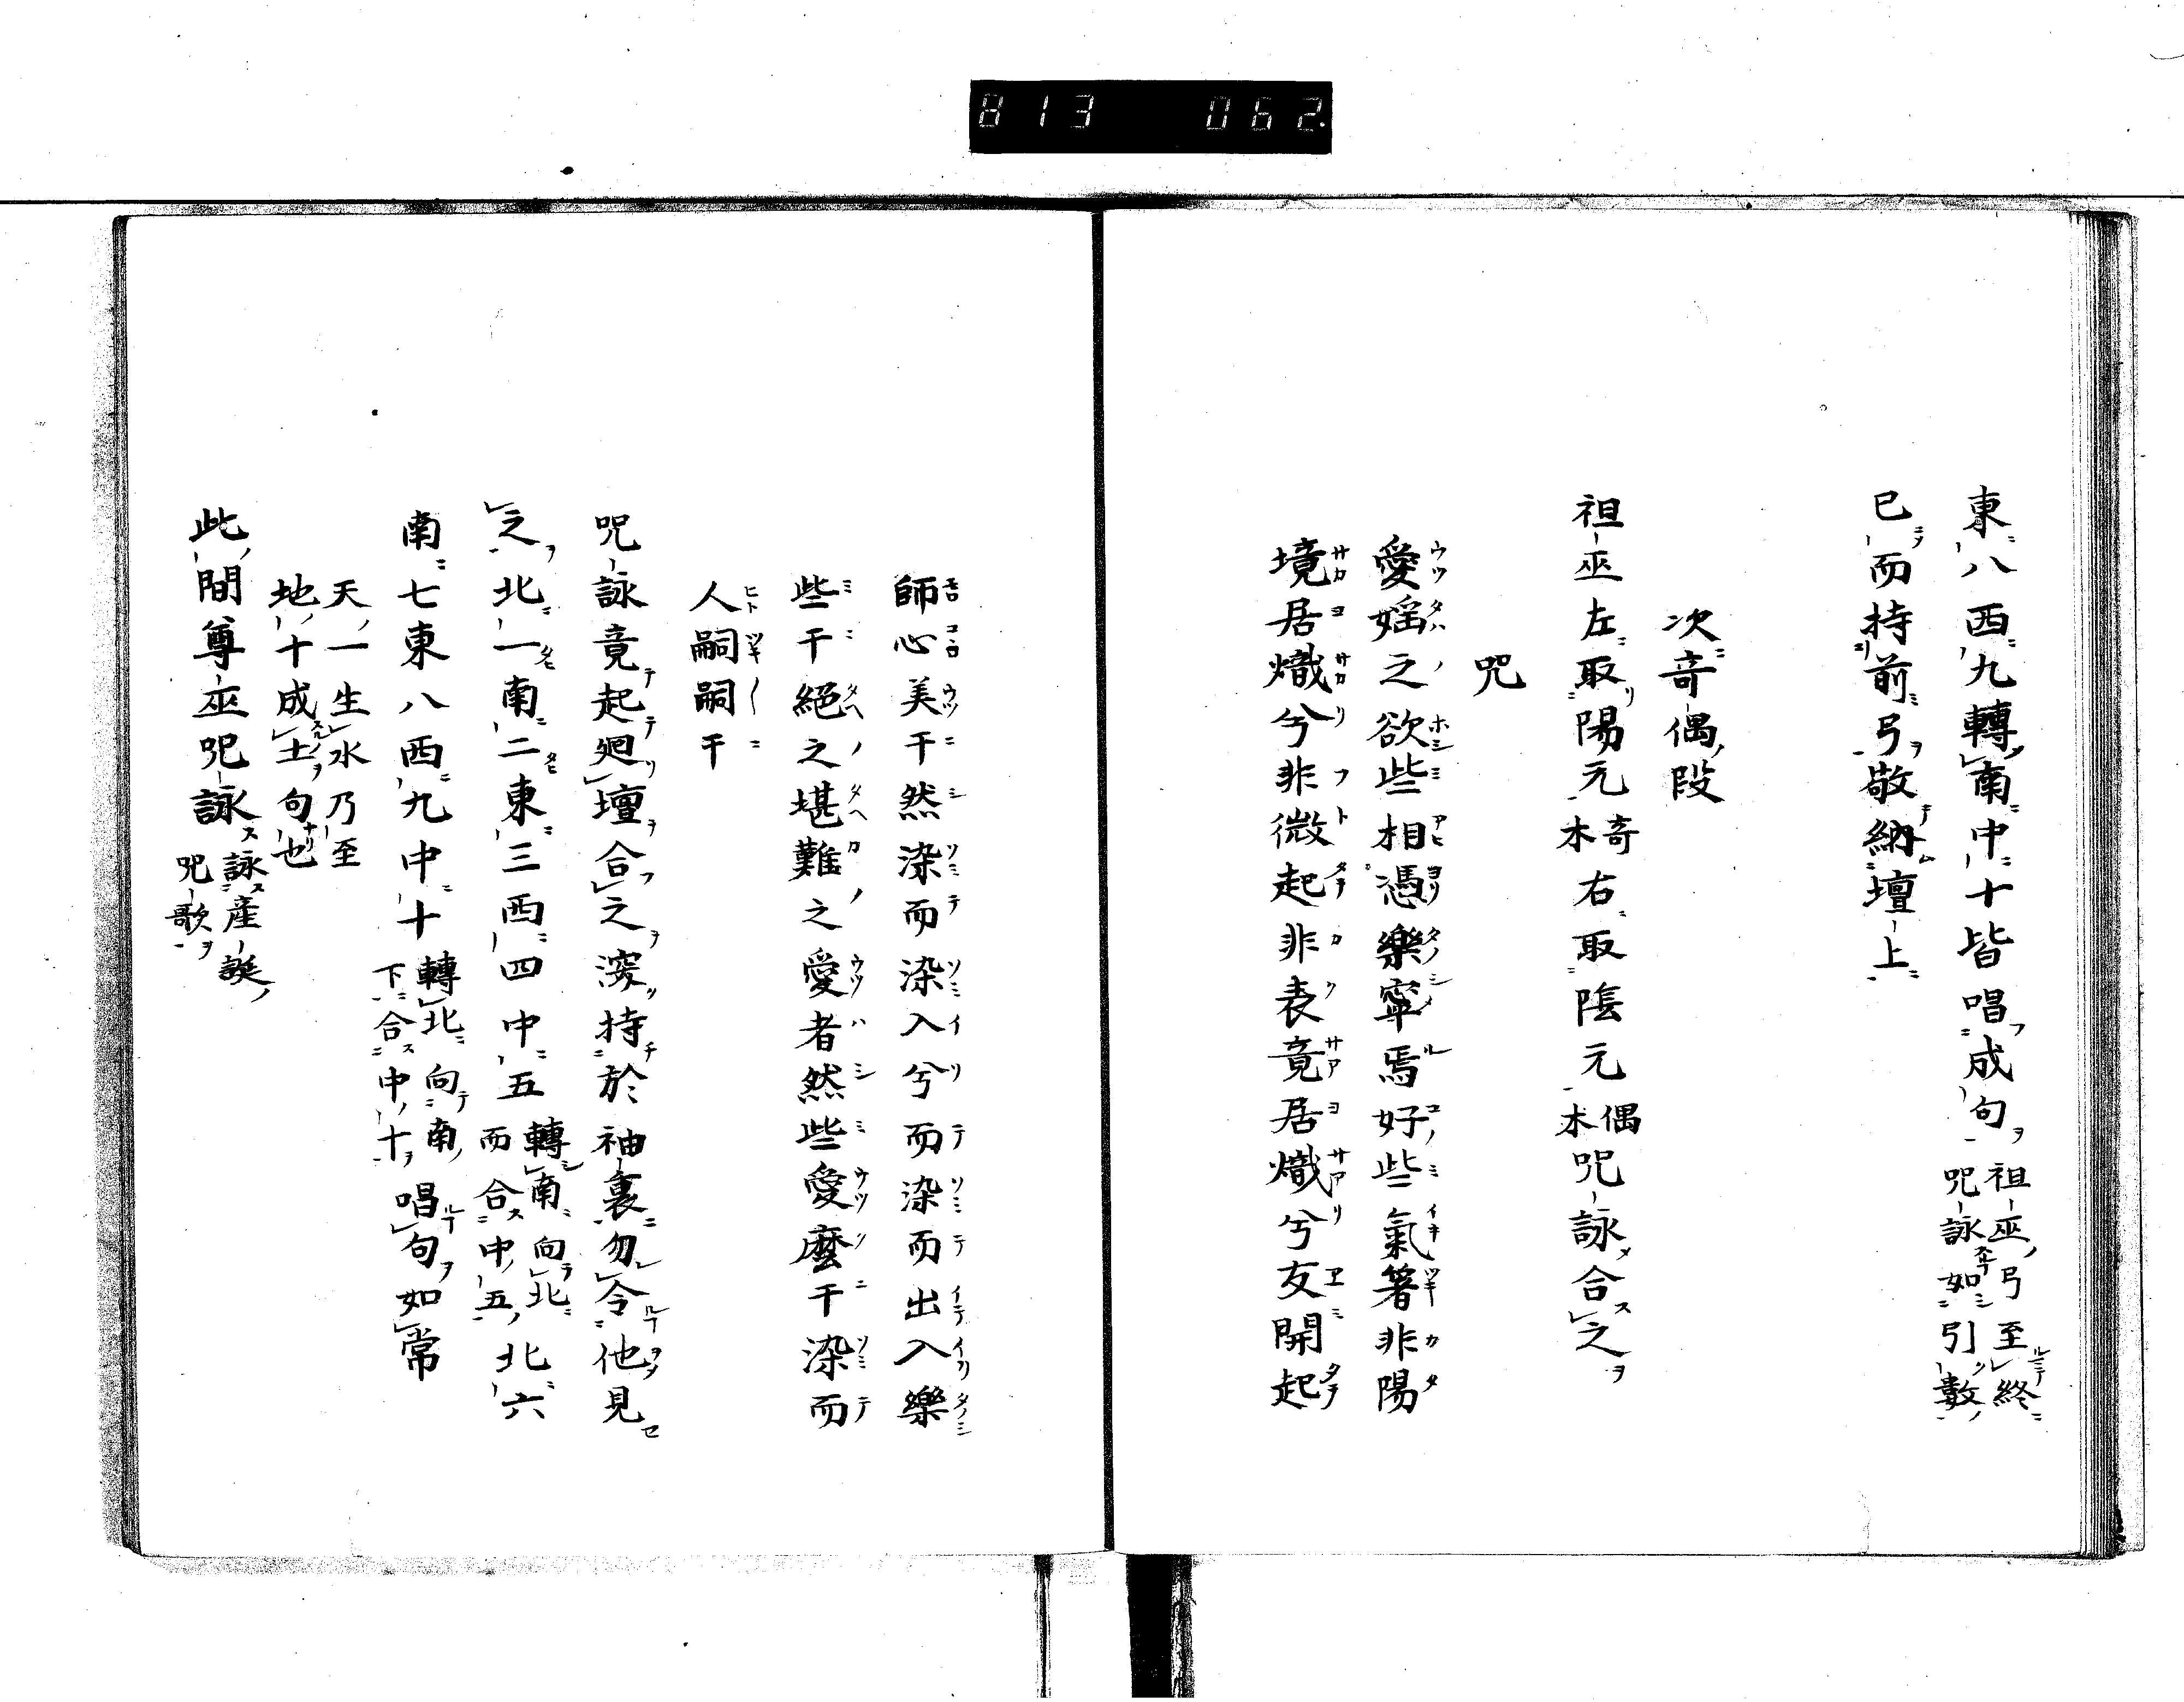 813 062.
東八西九轉南中十皆唱成句祖巫弓至終
呪詠如引數
已而持前弓敬納壇上
次竒偶段
祖巫左取陽元竒木右取陰元偶木呪詠合之
呪
愛婬之欲些相憑樂寧焉好些氣箸非陽
境居熾兮非微起非表竟居熾兮友開起
師心美干然染而染入兮而染而出入樂
些干絕之堪難之愛者然些愛麼干染而
人嗣嗣干
呪詠竟起廻壇合之深持於袖裏勿令他見
之北一南二東三西四中五轉南向北而合中五北六
南七東八西九中十轉北向南下合中十唱句如常
天一生水乃至
地十成土句也
此間尊巫呪詠詠産誕
呪歌